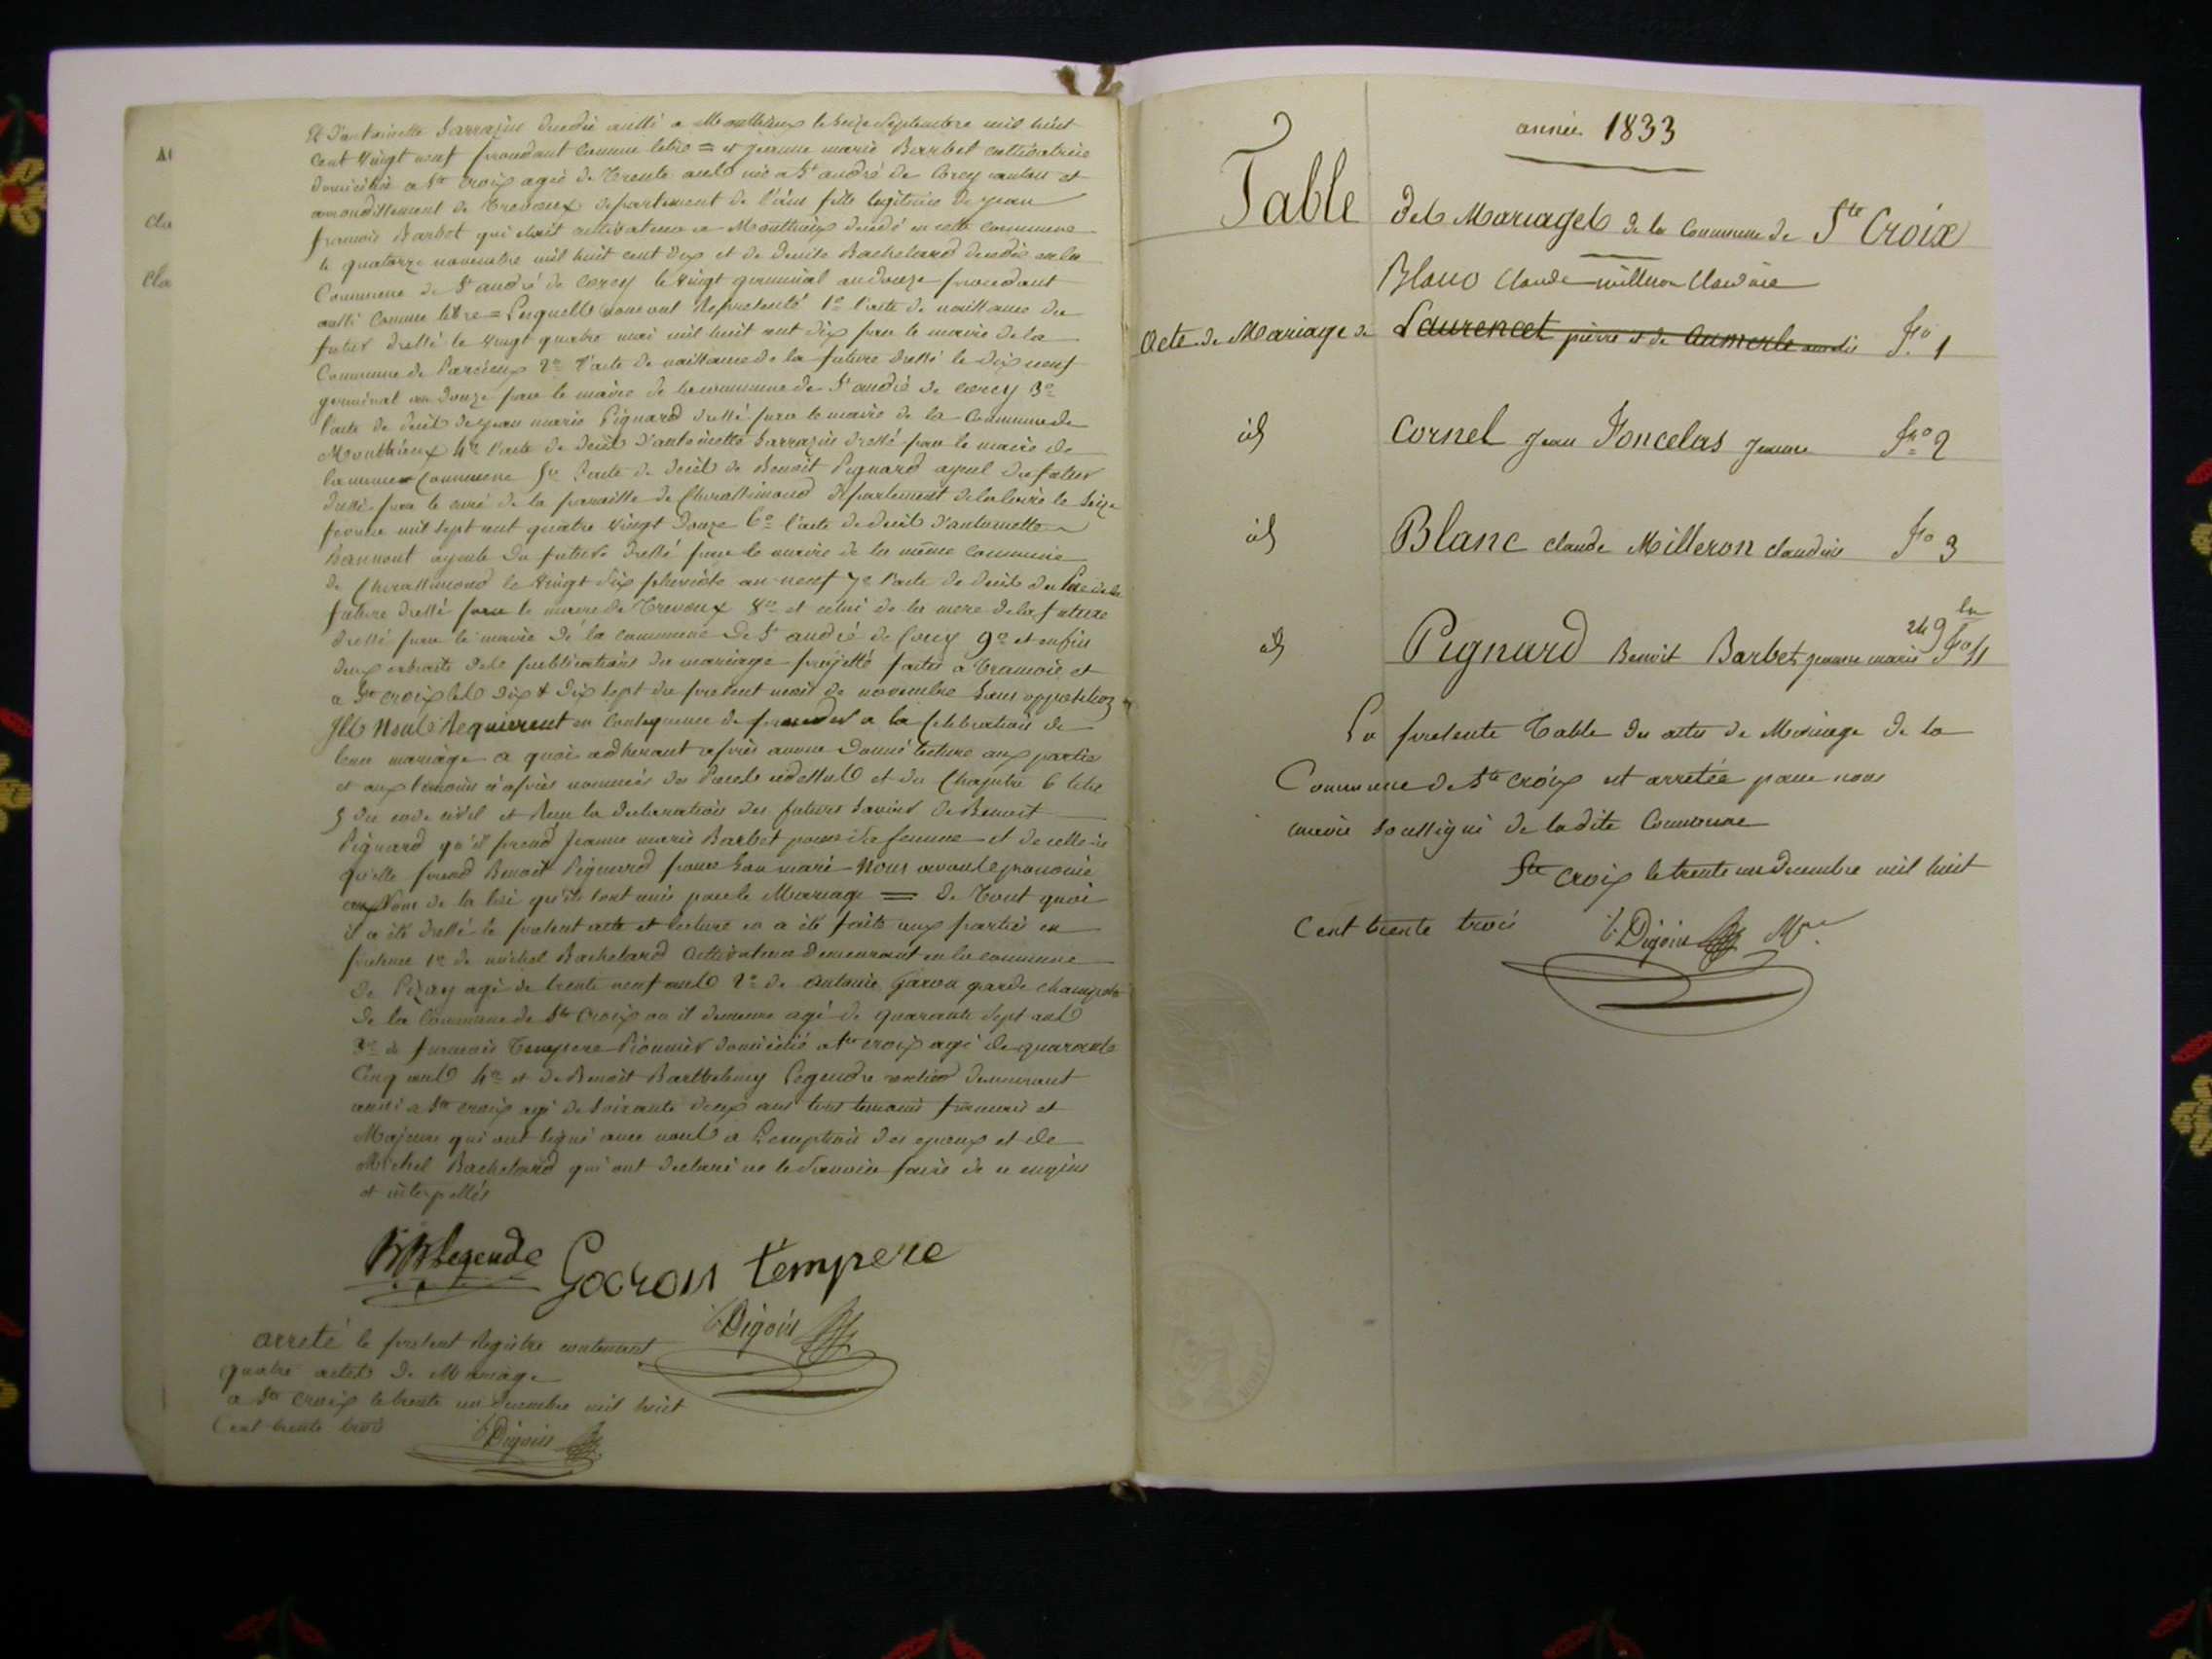 Et d'antoinette Sarrazin decedée aussi a Monthieux le seize septembre mil huit
cent vingt neuf procedant comme libre = et jeanne marie Barbet cultivatrice
domiciliée a Ste Croix agée de trente ans née a St andré de Corcy canton et
arrondissement de Trevoux departement de l'ain fille legitime de jean
francois Barbet qui etait cultivateur a Monthieux decedé en cette commune
le quatorze novembre mil huit cent dix et de Benite Bachelard decedée en la
Commune de St andré de Corcy le vingt germinal an douze procedant
aussi comme libre = Lesquels nous ont representé 1o l'acte de naissance du
futur dressé le vingt quatre mai mil huit cent dix par le maire de la
Commune de Parcieux 2o l'acte de naissance de la future dressé le dix neuf
germinal an douze par le maire de la commune de St andré de corcy 3o
l'acte de decès de jean marie Pignard dressé par le maire de la Commune de
Monthieux 4o l'acte de decès d'antoinette Sarrazin dressé par le maire de
la meme Commune 5o l'acte de decès de Benoit Pignard ayeul du futur
dressé par le curé de la paroisse de Chirassimond departement de la loire le seize
fevrier mil sept cent quatre vingt douze 6o l'acte de decès d'antoinette
ayeule du futur dressé par le maire de la même commune
de Chirassimond le vingt dix pluviôse an neuf 7o l'acte de decès du Père de la
future dressé par le maire de Trevoux 8o et celui de la mere de la future
dressé par le maire de la commune de St andré de Corcy 9o et enfin
deux extraits des publications du mariage projetté faites a Tramoie et
a Ste croix les dix & dix sept du present mois de novembre sans opposition
Ils nous Requierent en consequence de proceder a la Celebration de
leur mariage a quoi adherant après avoir donné lecture aux parties
et aux temoins ci après nommés des Pieces cidessus et du Chapitre 6 titre
5 du code civil et Reçu la declaration des futurs savoir de Benoit
Pignard qu'il prend Jeanne marie Barbet pour sa femme et de celle-ci
qu'elle prend Benoit Pignard pour son mari - Nous avons prononcé
au Nom de la loi qu'ils sont unis par le Mariage = De Tout quoi
il a été dressé le present acte et lecture en a été faite aux parties en
presence 1o de michel Bachelard cultivateur demeurant en la commune
de Pizay agé de trente neuf ans 2o de antoine Garon garde champetre
de la Commune de Ste Croix ou il demeure agé de quarante sept ans
3o de francois Tempere Pionnier domicilié a Ste croix agé de quarante
Cinq ans 4o et de Benoit Barthelemy Legendre rentier demeurant
aussi a Ste croix agé de soixante deux ans tous temoins francais et
Majeurs qui ont signé avec nous a l'exception des epoux et de
Michel Bachelard qui ont declaré ne le savoir faire de ce enquis
et interpellés
BBLegendre Gocron tempere
Digoin
arreté le present Registre contenant
quatre actes de Mariage
a Ste Croix le trente un decembre mil huit
Cent trente trois
Digoin
année 1833
Table des Mariages de la Commune de Ste Croix
Blanc Claude milleron Claudine
Acte de Mariage de Laurencet pierre et de Aumerle Fo 1
id Cornel Jean Foncelas Jeanne Fo 2
id Blanc claude Milleron claudine Fo 3
id Pignard Benoit Barbet jeanne marie
La presente Table des actes de Mariage de la
Commune de Ste Croix est arretée par nous
maire soussigné de la dite Commune
Ste Croix le trente un decembre mil huit
Cent trente trois Digoin Mre